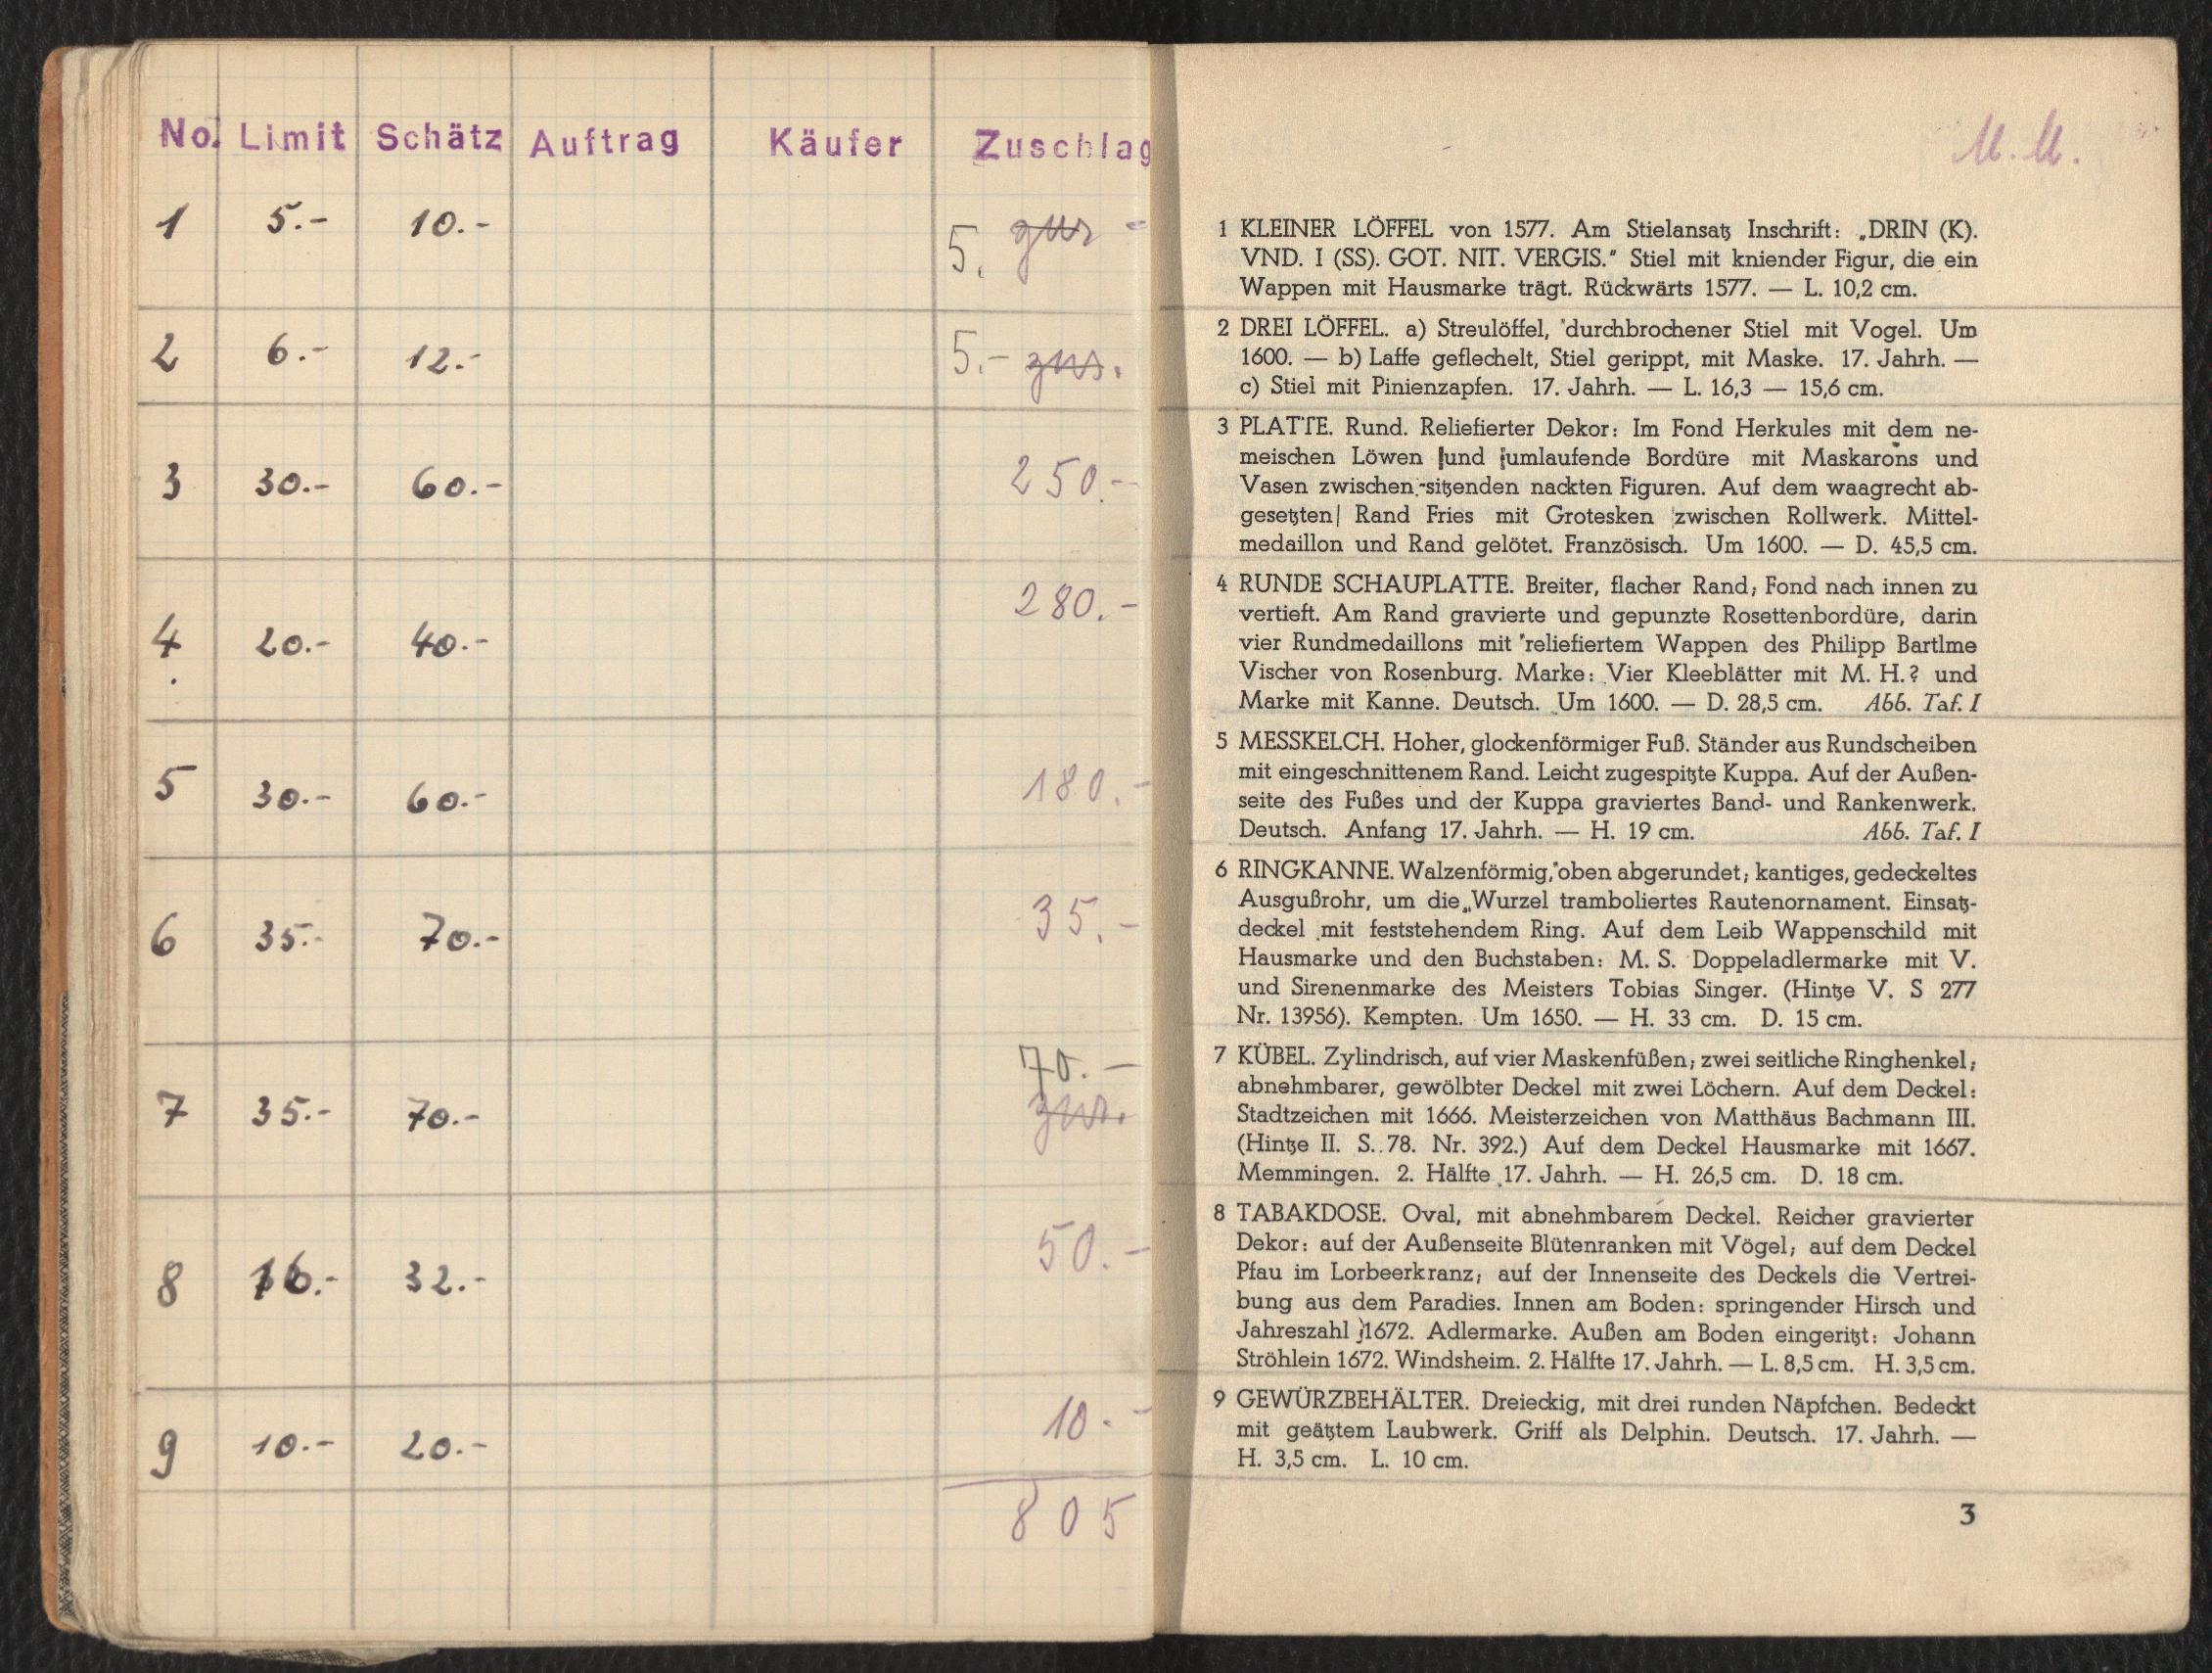 No. Limit Schätz Auftrag Käufer Zuschlag
1 5.- 10.- 5. zur -
2 6.- 12.- 5.- zur.
3 30.- 60.- 250.-
4 20.- 40.- 280.-
5 30.- 60.- 180.-
6 35.- 70.- 35.-
7 35.- 70.- 70.-
zur.
8 16.- 32.- 50.-
9 10.- 20.- 10.-
805
M. M.
1 KLEINER LÖFFEL von 1577. Am Stielansatz Inschrift: „DRIN (K).
VND. I (SS). GOT. NIT. VERGIS." Stiel mit kniender Figur, die ein
Wappen mit Hausmarke trägt. Rückwärts 1577. — L. 10,2 cm.
2 DREI LÖFFEL. a) Streulöffel, durchbrochener Stiel mit Vogel. Um
1600. — b) Laffe geflechelt, Stiel gerippt, mit Maske. 17. Jahrh. —
c) Stiel mit Pinienzapfen. 17. Jahrh. — L. 16,3 — 15,6 cm.
3 PLATTE. Rund. Reliefierter Dekor: Im Fond Herkules mit dem ne-
meischen Löwen und umlaufende Bordüre mit Maskarons und
Vasen zwischen sitzenden nackten Figuren. Auf dem waagrecht ab-
gesetzten Rand Fries mit Grotesken zwischen Rollwerk. Mittel-
medaillon und Rand gelötet. Französisch. Um 1600. — D. 45,5 cm.
4 RUNDE SCHAUPLATTE. Breiter, flacher Rand; Fond nach innen zu
vertieft. Am Rand gravierte und gepunzte Rosettenbordüre, darin
vier Rundmedaillons mit reliefiertem Wappen des Philipp Bartlme
Vischer von Rosenburg. Marke: Vier Kleeblätter mit M. H.? und
Marke mit Kanne. Deutsch. Um 1600. — D. 28,5 cm. Abb. Taf. I
5 MESSKELCH. Hoher, glockenförmiger Fuß. Ständer aus Rundscheiben
mit eingeschnittenem Rand. Leicht zugespitzte Kuppa. Auf der Außen-
seite des Fußes und der Kuppa graviertes Band- und Rankenwerk.
Deutsch. Anfang 17. Jahrh. — H. 19 cm. Abb. Taf. I
6 RINGKANNE. Walzenförmig, oben abgerundet; kantiges, gedeckeltes
Ausgußrohr, um die Wurzel tramboliertes Rautenornament. Einsatz-
deckel mit feststehendem Ring. Auf dem Leib Wappenschild mit
Hausmarke und den Buchstaben: M. S. Doppeladlermarke mit V.
und Sirenenmarke des Meisters Tobias Singer. (Hintze V. S 277
Nr. 13956). Kempten. Um 1650. — H. 33 cm. D. 15 cm.
7 KÜBEL. Zylindrisch, auf vier Maskenfüßen; zwei seitliche Ringhenkel;
abnehmbarer, gewölbter Deckel mit zwei Löchern. Auf dem Deckel:
Stadtzeichen mit 1666. Meisterzeichen von Matthäus Bachmann III.
(Hintze II. S. 78. Nr. 392.) Auf dem Deckel Hausmarke mit 1667.
Memmingen. 2. Hälfte 17. Jahrh. — H. 26,5 cm. D. 18 cm.
8 TABAKDOSE. Oval, mit abnehmbarem Deckel. Reicher gravierter
Dekor: auf der Außenseite Blütenranken mit Vögel; auf dem Deckel
Pfau im Lorbeerkranz; auf der Innenseite des Deckels die Vertrei-
bung aus dem Paradies. Innen am Boden: springender Hirsch und
Jahreszahl 1672. Adlermarke. Außen am Boden eingeritzt: Johann
Ströhlein 1672. Windsheim. 2. Hälfte 17. Jahrh. — L. 8,5 cm. H. 3,5 cm.
9 GEWÜRZBEHÄLTER. Dreieckig, mit drei runden Näpfchen. Bedeckt
mit geätztem Laubwerk. Griff als Delphin. Deutsch. 17. Jahrh. —
H. 3,5 cm. L. 10 cm.
3